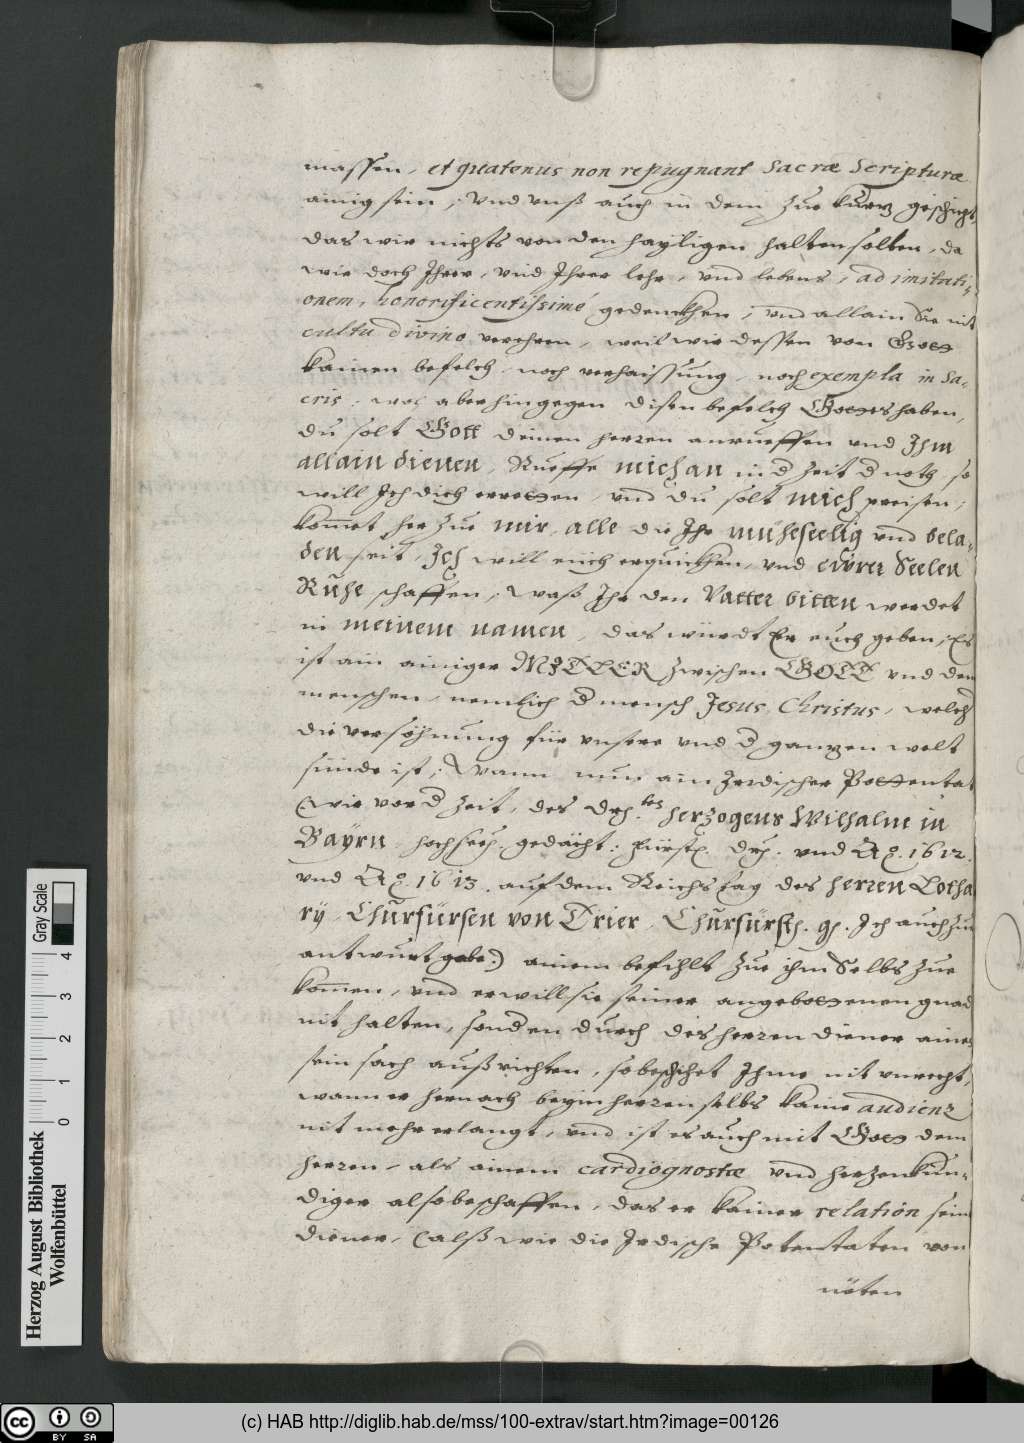 massen, et quatenus non repugnant Sacræ Scripturæ
ainig sein, Vnd vnß auch in dem zue kurtz geschicht,
das wir nichts von den hayligen halten solten, da
wir doch Ihrer, vnd Ihrer lehr, vnd lebens, ad imitati-
onem, honorificentissimé gedenckhen, vnd allain Sie nit
cultu divino verehren, weil wir dessen von Gott
kainen befelch, noch verhaissung, noch exempla in Sa-
cris, wol aber hingegen disen befelch Gottes haben,
du solt Gott deinen herren anrueffen vnd Ihm
allain dienen, Rueffe mich an in d Zeit d noth, so
will Ich dich erretten, vnd du solt mich preisen,
kommet her zue mir, alle die Ihr müheseelig vnd bela-
den seit, Ich will euch erquickhen, vnd ewrer Seelen
Ruhe schaffen, Waß Ihr den Vatter bitten werdet
in meinem namen, das würdt Er euch geben, Es
ist ain ainiger MITLER zwischen GOTT vnd den
menschen, nemblich d mensch Jesus Christus, welch
die versöhnung für vnsere vnd d gantzen welt
sünde ist, Wann nun ain Irrdischer Potentat
(wie vor d Zeit, des Drh. herzogens Wilhalm in
Bayrn hochseel. gedächt: fürstl. Drh. vnd Aō. 1612.
vnd Aō. 1613. auf dem Reichstag des herren Lotha
rÿ Churfürsen von Trier, Churfürstl. g. Ich auch zu
antwurt gabe) ainem befihlt zue ihm Selbs zue
kommen, vnd er will sie seiner angebottenen gnad
nit halten, sonden durch des herren diener aine
sein sach außrichten, so beschihet Ihme nit vnrecht,
wann er hernach beÿm herren selbs kaine audienz
nit mehr erlangt, vnd ist es auch mit Gott dem
herren, als ainem cardiognostæ vnd herzenkün-
diger also beschaffen, das er kainer relation sein
diener, (alß wie die Irdische Potentaten von
nöten
Herzog August Bibliothek
Wolfenbüttel
Gray Scale
0 1 2 3 4
(c) HAB http://diglib.hab.de/mss/100-extrav/start.htm?image=00126
cc BY SA